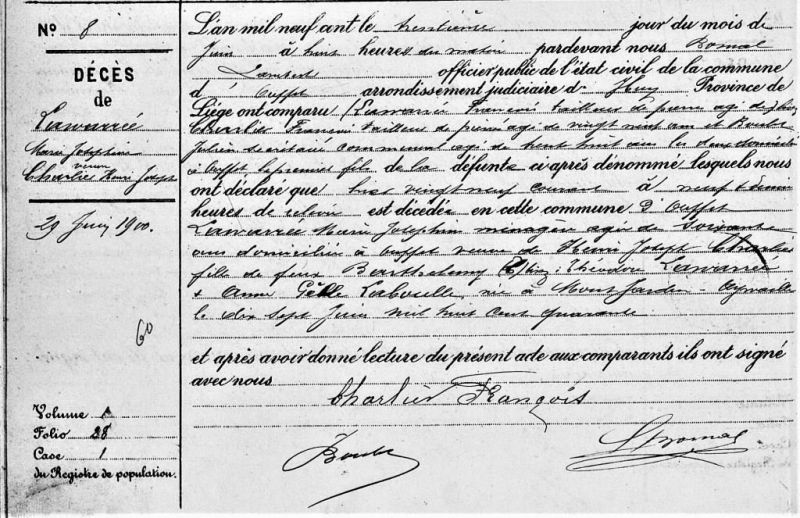 No 8
DÉCÈS
de
Lawarrée
Marie Josephine
veuve
Charlier Henri Joseph
29 Juin 1900.
60
Volume
Folio 28
Case 1
du Registre de population.
L'an mil neuf cent le trentième jour du mois de
Juin à huit heures du matin pardevant nous Bomal
Lambert officier public de l'état civil de la commune
d' Ouffet arrondissement judiciaire d Huy Province de
Liége ont comparu Lawarrée François tailleur de pierre agé de
Charlier François tailleur de pierre agé de vingt neuf ans et Boube
Julien secrétaire communal agé de trente huit ans les deux domiciliés
à Ouffet le premier fils de la défunte ci après dénommé lesquels nous
ont déclaré que hier vingt neuf courant à neuf & demie
heures de relevée est décédée en cette commune D'Ouffet
Lawarrée Marie Josephine ménagère agée de Soixante
ans domiciliée à Ouffet veuve de Henri Joseph Charlier
fille de feux Barthelemy Théodore Lawarrée
& Anne Laboulle, née à Mont Jardin - Aywaille
le dix Sept Juin mil huit cent quarante.
et après avoir donné lecture du présent acte aux comparants ils ont signé
avec nous
Charlier François
Boube
L Bomal